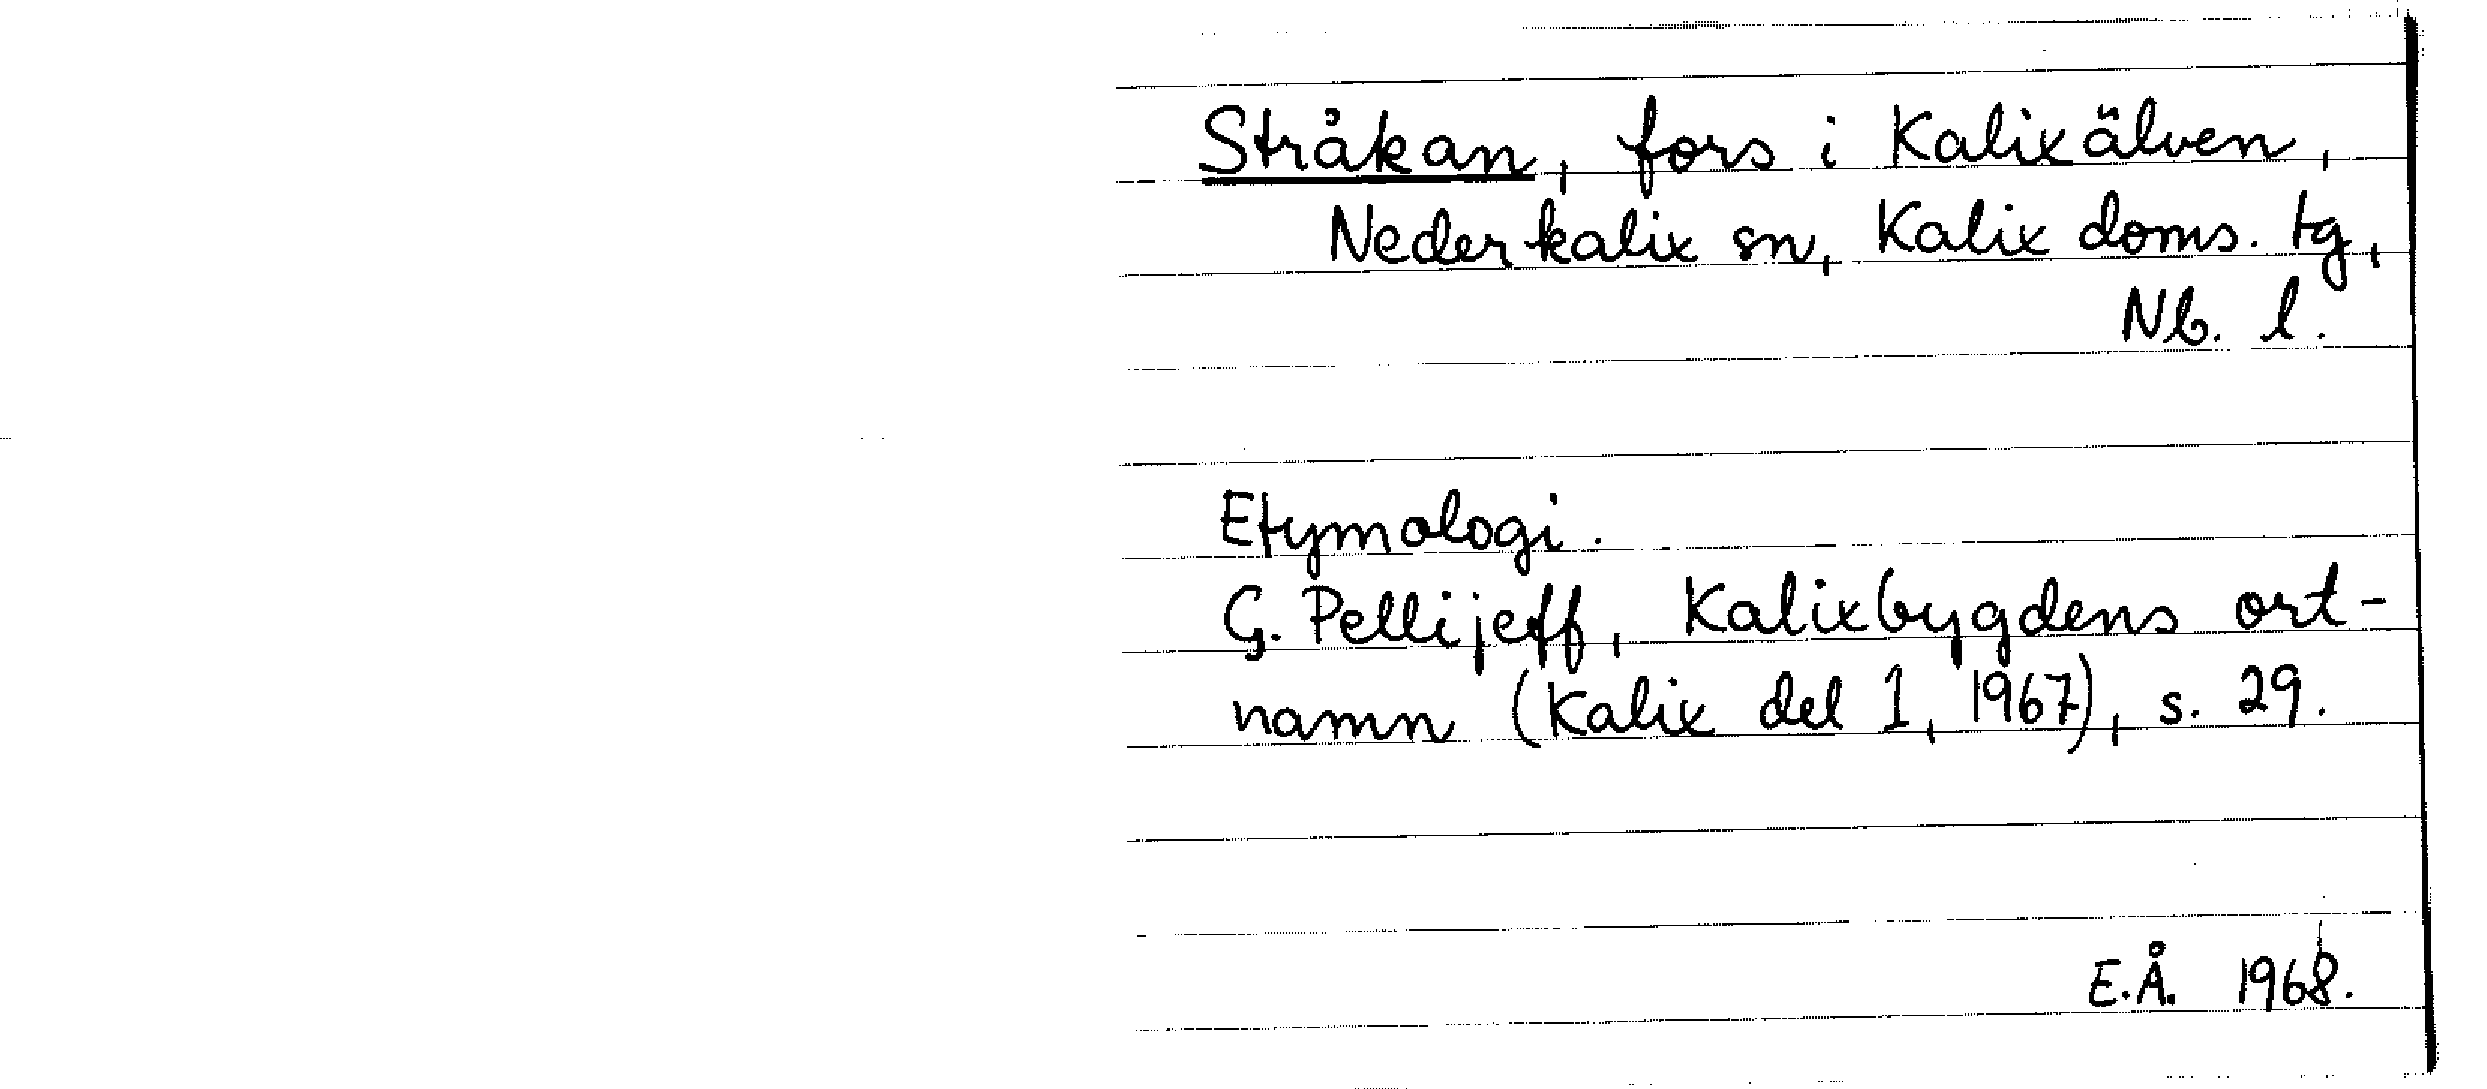 Stråkan, fors i Kalixälven,
Nederkalix sn, Kalix doms. tg,
Nb. l.
Etymologi.
G. Pellijeff, Kalixbygdens ort-
namn (Kalix del 1, 1967), s. 29.
E.Å. 1968.